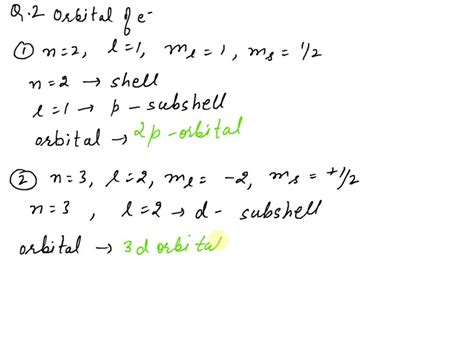 Q.2 Orbital of e-
① n=2, l=1, ml=1, ms=1/2
n=2 → shell
l=1 → p-subshell
orbital → 2p-orbital
② n=3, l=2, ml= -2, ms= +1/2
n=3, l=2 → d- subshell
orbital → 3d orbital